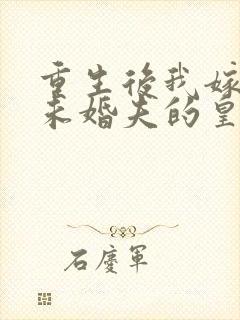 重生後我嫁
未婚夫的皇
石慶軍